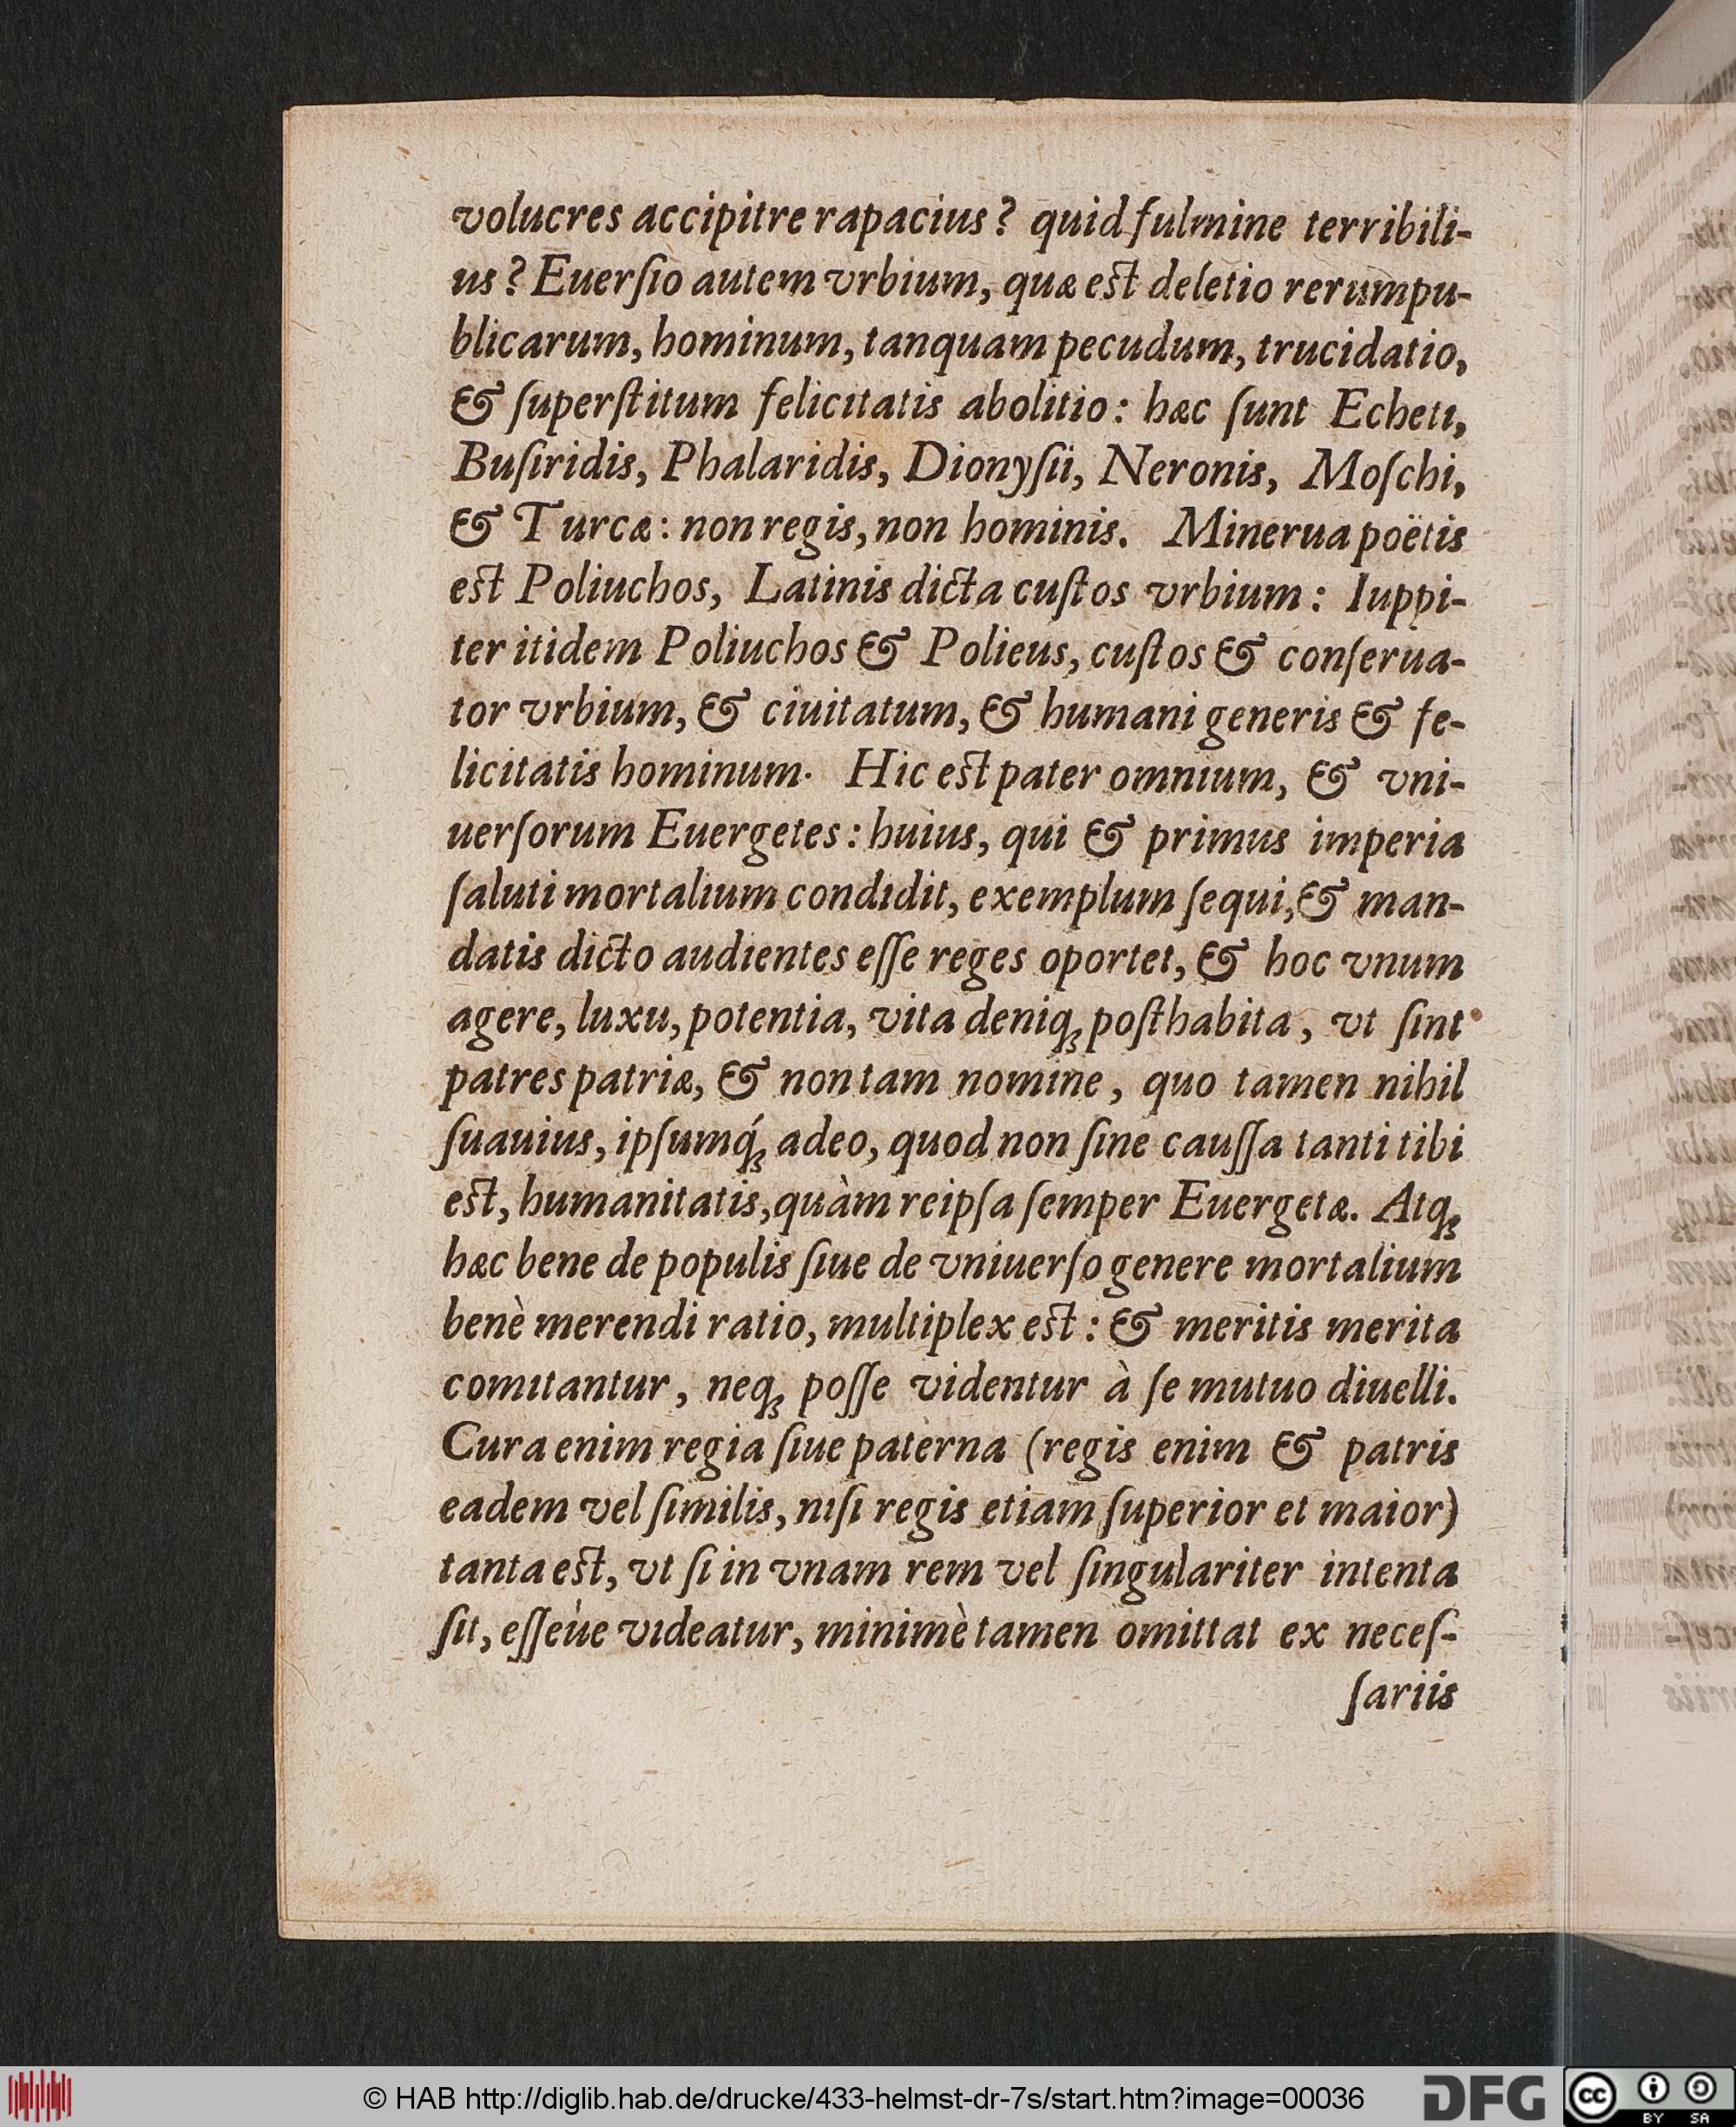 volucres accipitre rapacius? quid fulmine terribili-
us? Euerſio autem vrbium, quæ est deletio rerumpu-
blicarum, hominum, tanquam pecudum, trucidatio,
& ſuperſtitum felicitatis abolitio: hæc ſunt Echeti,
Buſiridis, Phalaridis, Dionyſii, Neronis, Moſchi,
& Turcæ: non regis, non hominis. Minerua poëtis
est Poliuchos, Latinis dicta cuſtos vrbium: Iuppi-
ter itidem Poliuchos & Polieus, cuſtos & conſerua-
tor vrbium, & ciuitatum, & humani generis & fe-
licitatis hominum. Hic est pater omnium, & vni-
uerſorum Euergetes: huius, qui & primus imperia
ſaluti mortalium condidit, exemplum ſequi, & man-
datis dicto audientes eſſe reges oportet, & hoc vnum
agere, luxu, potentia, vita deniq; poſthabita, vt ſint
patres patriæ, & non tam nomine, quo tamen nihil
ſuauius, ipſumq́; adeo, quod non ſine cauſſa tanti tibi
est, humanitatis, quàm reipſa ſemper Euergetæ. Atq;
hæc bene de populis ſiue de vniuerſo genere mortalium
benè merendi ratio, multiplex est: & meritis merita
comitantur, neq; poſſe videntur à ſe mutuo diuelli.
Cura enim regia ſiue paterna (regis enim & patris
eadem vel ſimilis, niſi regis etiam ſuperior et maior)
tanta est, vt ſi in vnam rem vel ſingulariter intenta
ſit, eſſeùe videatur, minimè tamen omittat ex neceſ-
ſariis
© HAB http://diglib.hab.de/drucke/433-helmst-dr-7s/start.htm?image=00036
DFG
cc BY SA